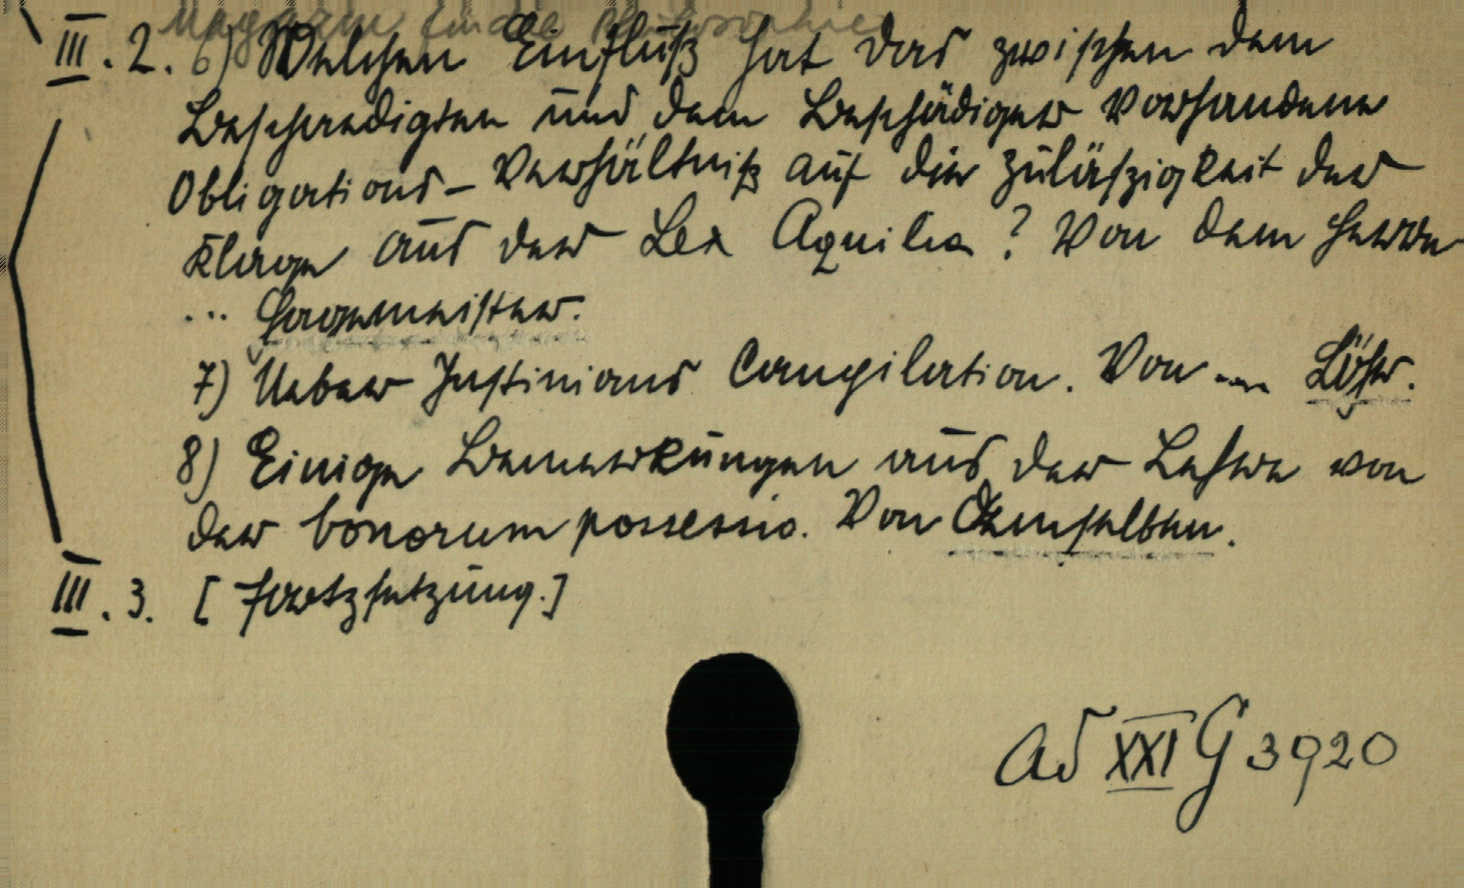 Magazin für die Philosophie
III. 2. 6) Welchen Einfluß hat das zwischen dem
Beschaedigten und dem Beschädiger vorhandene
Obligations-Verhältniß auf die Zuläßzigkeit der
Klage aus der Lex Aquilia? Von dem Herrn
... Hagemeister.
7) Ueber Justinians Compilation. Von ... Löhr.
8) Einige Bemerkungen aus der Lehre von
der bonorum possessio. Von Demselben.
III. 3. [Fortzsetzung.]
Ad XXI G 3920